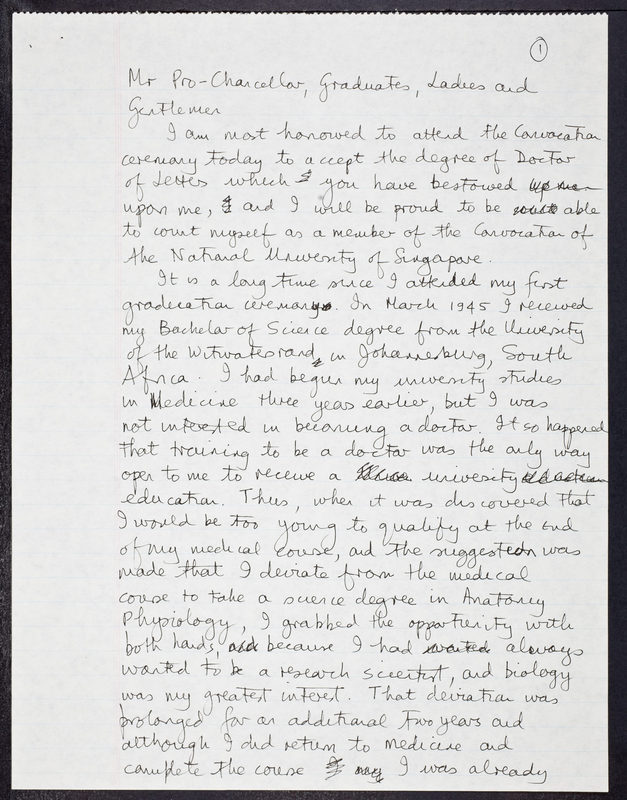 1
Mr Pro-Chancellor, Graduates, Ladies and
Gentlemen
I am most honoured to attend the Convocation
ceremony today to accept the degree of Doctor
of Letters which I you have bestowed upon me
upon me, I and I will be proud to be able
to count myself as a member of the Convocation of
the National University of Singapore.
It is a long time since I attended my first
graduation ceremony. In March 1945 I received
my Bachelor of Science degree from the University
of the Witwatersrand, in Johannesburg, South
Africa. I had begun my university studies
in Medicine three years earlier, but I was
not interested in becoming a doctor. It so happened
that training to be a doctor was the only way
open to me to receive a university
education. Thus, when it was discovered that
I would be too young to qualify at the end
of my medical course, and the suggestion was
made that I deviate from the medical
course to take a science degree in Anatomy
Physiology, I grabbed the opportunity with
both hands, and because I had wanted always
wanted to be a research scientist, and biology
was my greatest interest. That deviation was
prolonged for an additional two years and
although I did return to medicine and
complete the course I my I was already